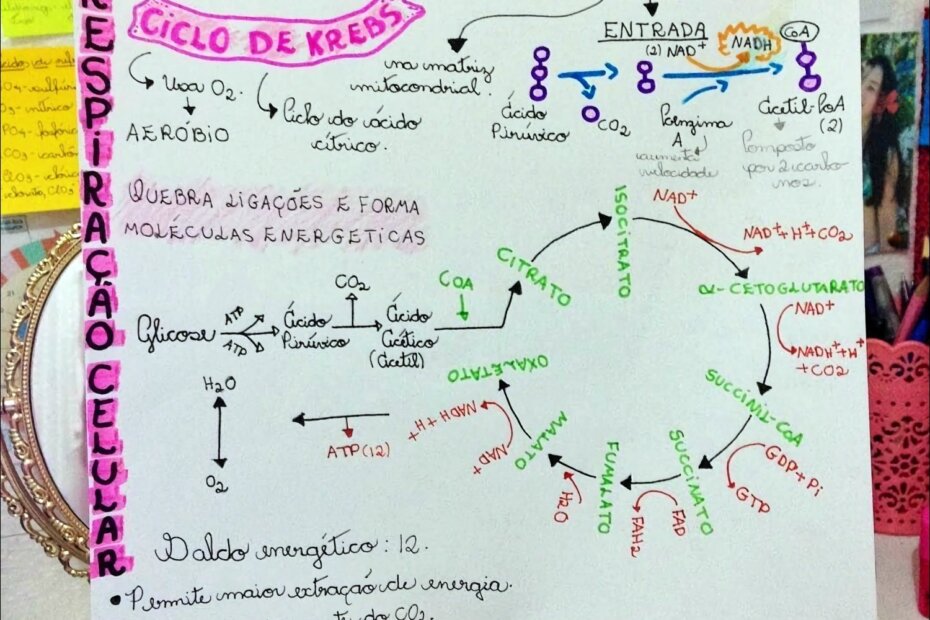 RESPIRAÇÃO CELULAR
CICLO DE KREBS
Usa O₂.
AERÓBIO
Ciclo do ácido
cítrico.
na matriz
mitocondrial.
ENTRADA
(2) NAD⁺
NADH
CoA
Ácido
Pirúvico
CO₂
Coenzima
A
aumenta
velocidade
Acetil-CoA
(2)
Composto
por 2 carbo
nos.
QUEBRA LIGAÇÕES E FORMA
MOLÉCULAS ENERGETICAS
Glicose
ATP
ATP
Ácido
Pirúvico
CO₂
Ácido
Acético
(Acetil)
COA
CITRATO
ISOCITRATO
NAD⁺
NAD⁺+H⁺+CO₂
α-CETOGLUTARATO
NAD⁺
NADH⁺+H⁺
+CO2
SUCCINIL-COA
GDP+Pi
GTP
SUCCINATO
FAD
FAH2
FUMALATO
H₂O
MALATO
NAD⁺
NADH+H⁺
OXALETATO
ATP(12)
H₂O
O₂
Saldo energético: 12.
• Permite maior extração de energia.
do CO₂.